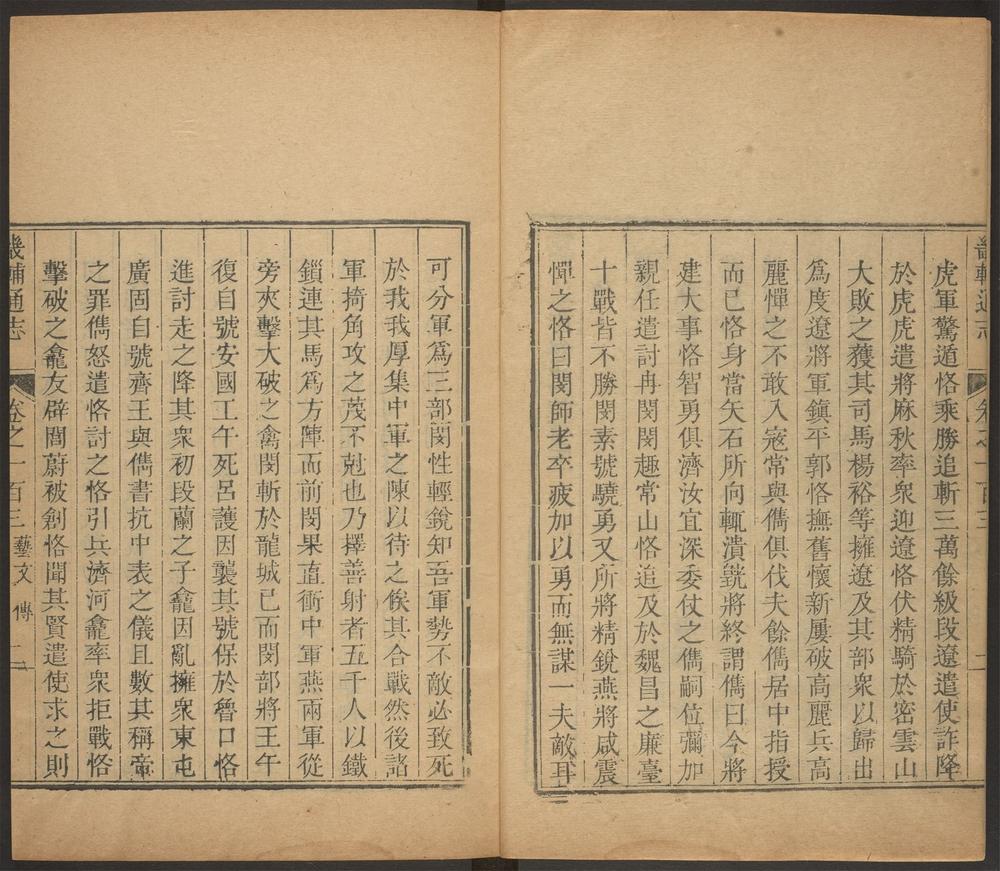 虎軍驚遁恪乘勝追斬三萬餘級段遼遣使詐降
於虎虎遣將麻秋率衆迎遼恪伏精騎於密雲山
大敗之獲其司馬楊裕等擁遼及其部衆以歸出
爲度遼將軍鎮平郭恪撫舊懷新屢破高麗兵高
麗憚之不敢入寇常與儁俱伐夫餘儁居中指授
而已恪身當矢石所向輒潰皝將終謂儁曰今將
建大事恪智勇俱濟汝宜深委仗之儁嗣位彌加
親任遣討冉閔閔趣常山恪追及於魏昌之廉臺
十戰皆不勝閔素號驍勇又所將精銳燕將咸震
憚之恪曰閔師老卒疲加以勇而無謀一夫敵耳
畿輔通志
卷之一百三
可分軍爲三部閔性輕銳知吾軍勢不敵必致死
於我我厚集中軍之陳以待之俟其合戰然後諸
軍掎角攻之蔑不剋也乃擇善射者五千人以鐵
鎖連其馬爲方陣而前閔果直衝中軍燕兩軍從
旁夾擊大破之禽閔斬於龍城已而閔部將王午
復自號安國王午死呂護因襲其號保於魯口恪
進討走之降其衆初段蘭之子龕因亂擁衆東屯
廣固自號齊王與儁書抗中表之儀且數其稱帝
之罪儁怒遣恪討之恪引兵濟河龕率衆拒戰恪
擊破之龕友辟閭蔚被創恪聞其賢遣使求之則
畿輔通志
卷之一百三 藝文 傳
二